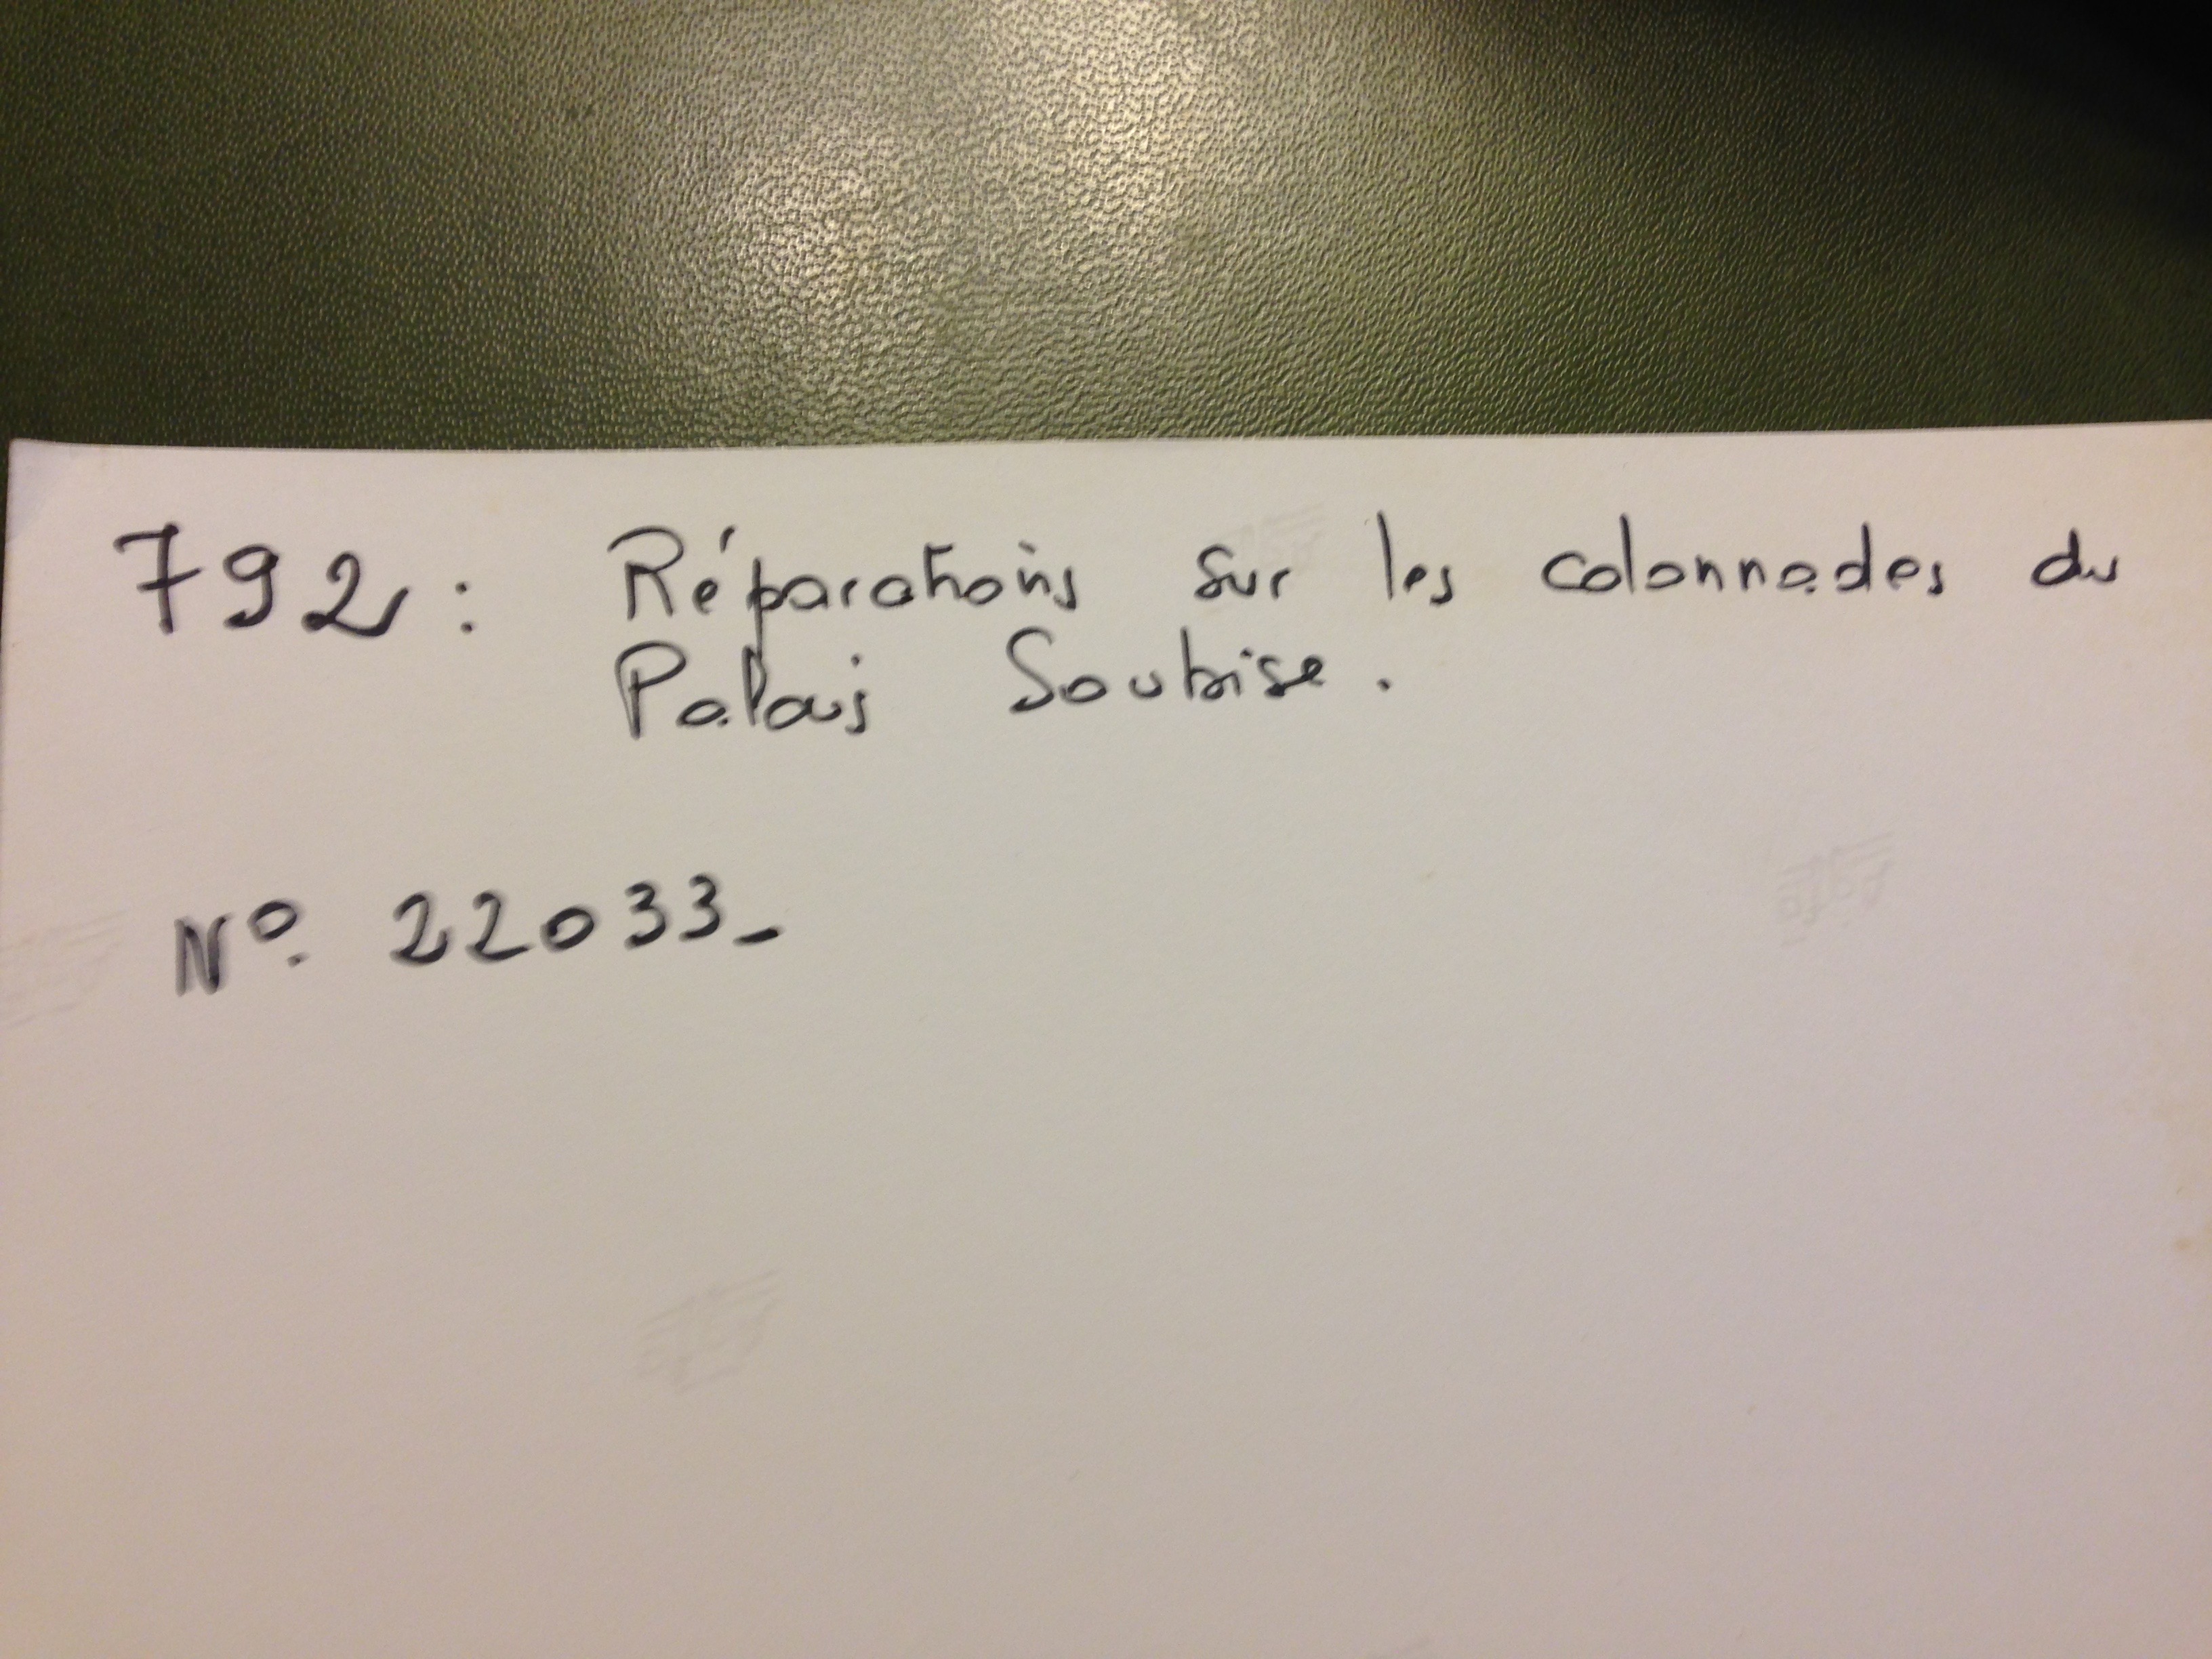 792: Réparations sur les colonnades du
Palais Soubise.
No. 22033_